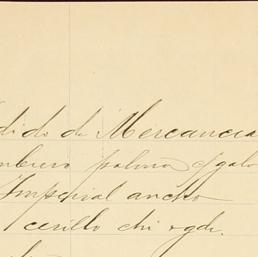 dido de Mercancia
mbrero paloma
Imperial ancho
cerillo chi y gde.